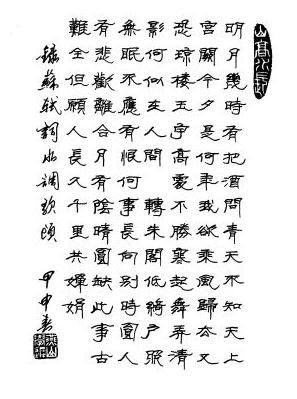 山高水長
明月幾時有把酒問青天不知天上
宮闕今夕是何年我欲乘風歸去又
恐瓊楼玉宇高處不勝寒起舞弄清
影何似在人間 轉朱閣低綺戶照
無眠不應有恨何事長向別時圓人
有悲歡離合月有陰晴圓缺此事古
難全但願人長久千里共嬋娟
錄蘇軾詞水調歌頭 甲申春